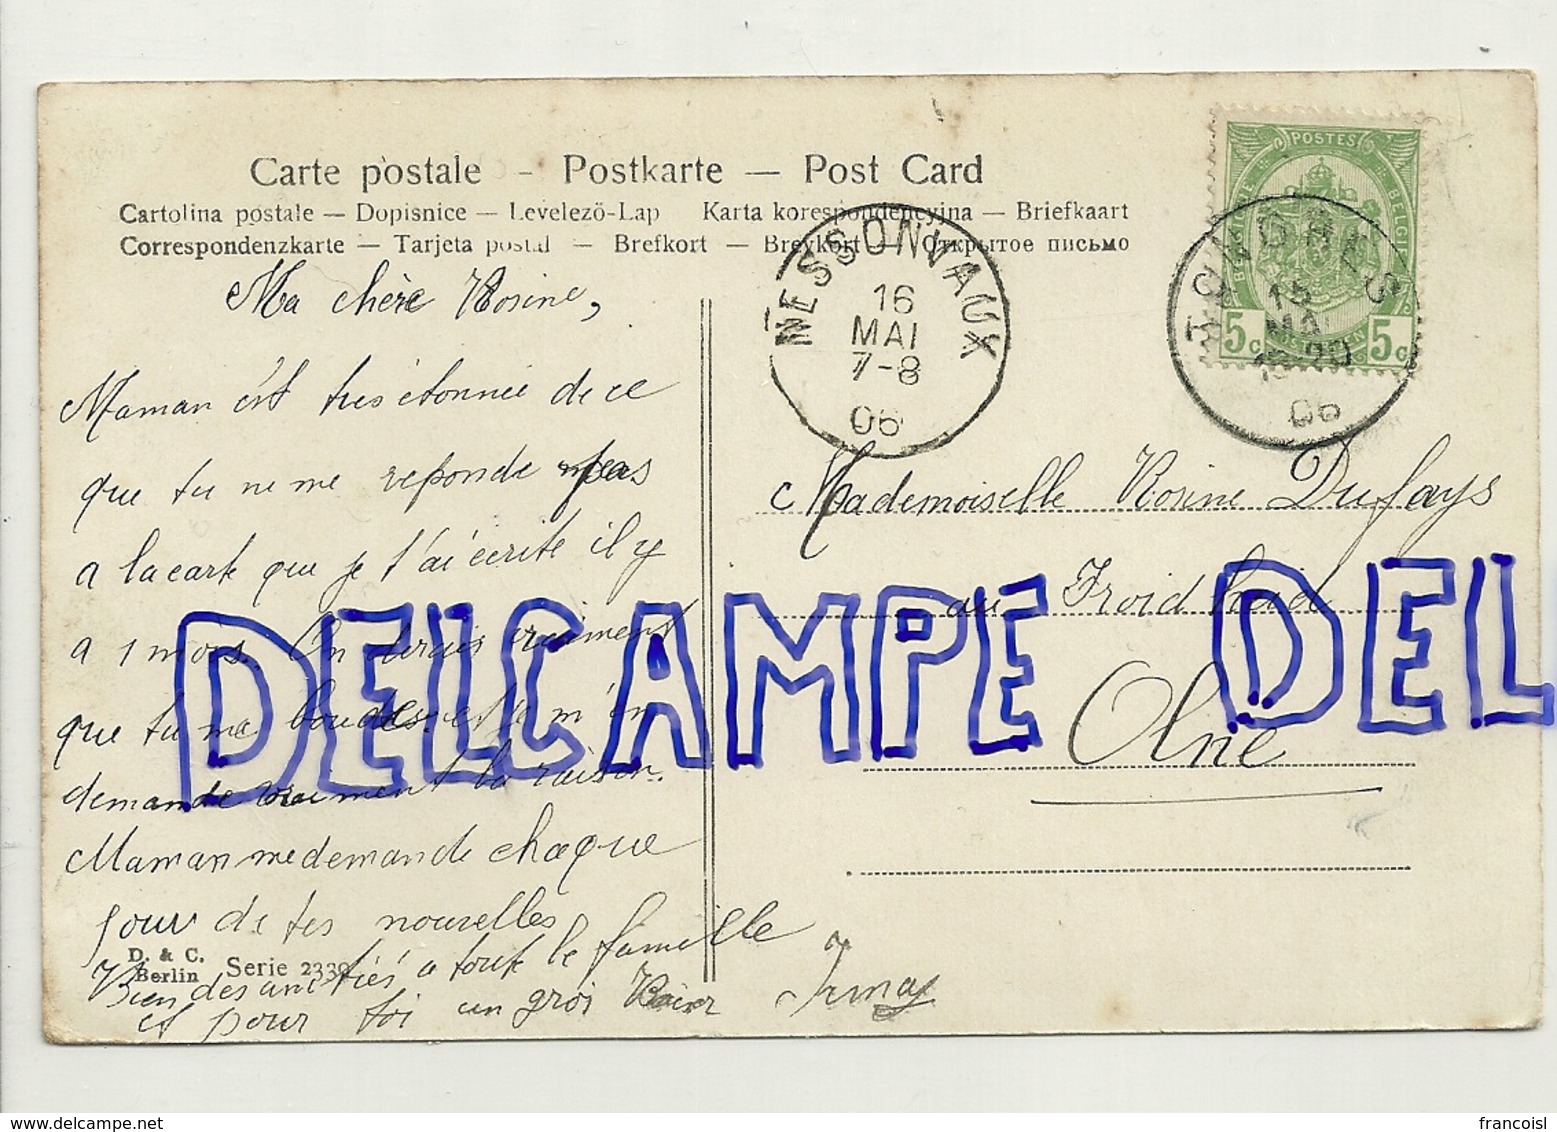 Carte postale - Postkarte — Post Card
Cartolina postale — Dopisnice — Levelezö-Lap Karta korespondencyjna — Briefkaart
Correspondenzkarte — Tarjeta postal — Brefkort — Brevkort — Открытое письмо
POSTES
BELGIQUE BELGIË
5c 5c
NESSONVAUX
16
MAI
7-8
06
15
06
Ma chère Rosine,
Maman est très étonnée de ce
que tu ne me reponde pas
a la carte que je t'ai écrite il y
a 1 mois. On dirais vraiment
que tu me boudes et je m'en
demande vraiment la raison.
Maman me demande chaque
jour de tes nouvelles
Bien des amitiés a toute la famille
et pour toi un gros Baiser Irma
Mademoiselle Rosine Dufays
au Froidbied
Olne
D. & C.
Berlin Serie 2339
DELCAMPE DEL
francoisl